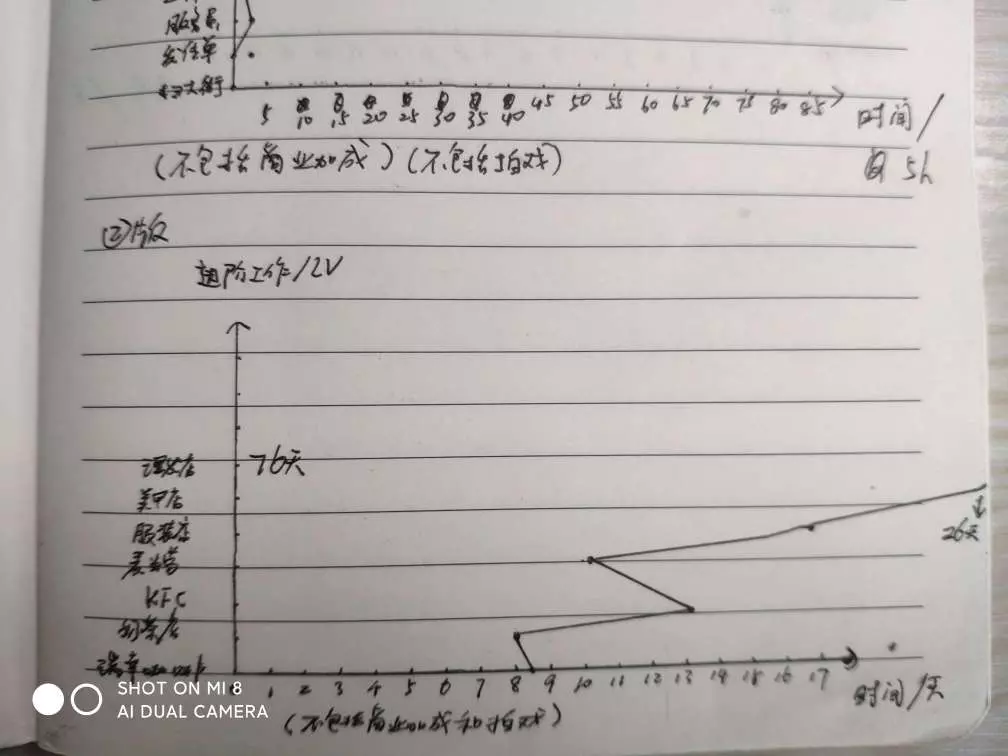 服务员
发传单
扫大街
5 10 15 20 25 30 35 40 45 50 55 60 65 70 75 80 85
时间/
5h
(不包括商业加成)(不包括拍戏)
②版
进阶工作/LV
理发店 76天
美甲店
服装店
26天
麦当劳
KFC
奶茶店
1 2 3 4 5 6 7 8 9 10 11 12 13 14 15 16 17
时间/天
(不包括商业加成和拍戏)
SHOT ON MI 8
AI DUAL CAMERA